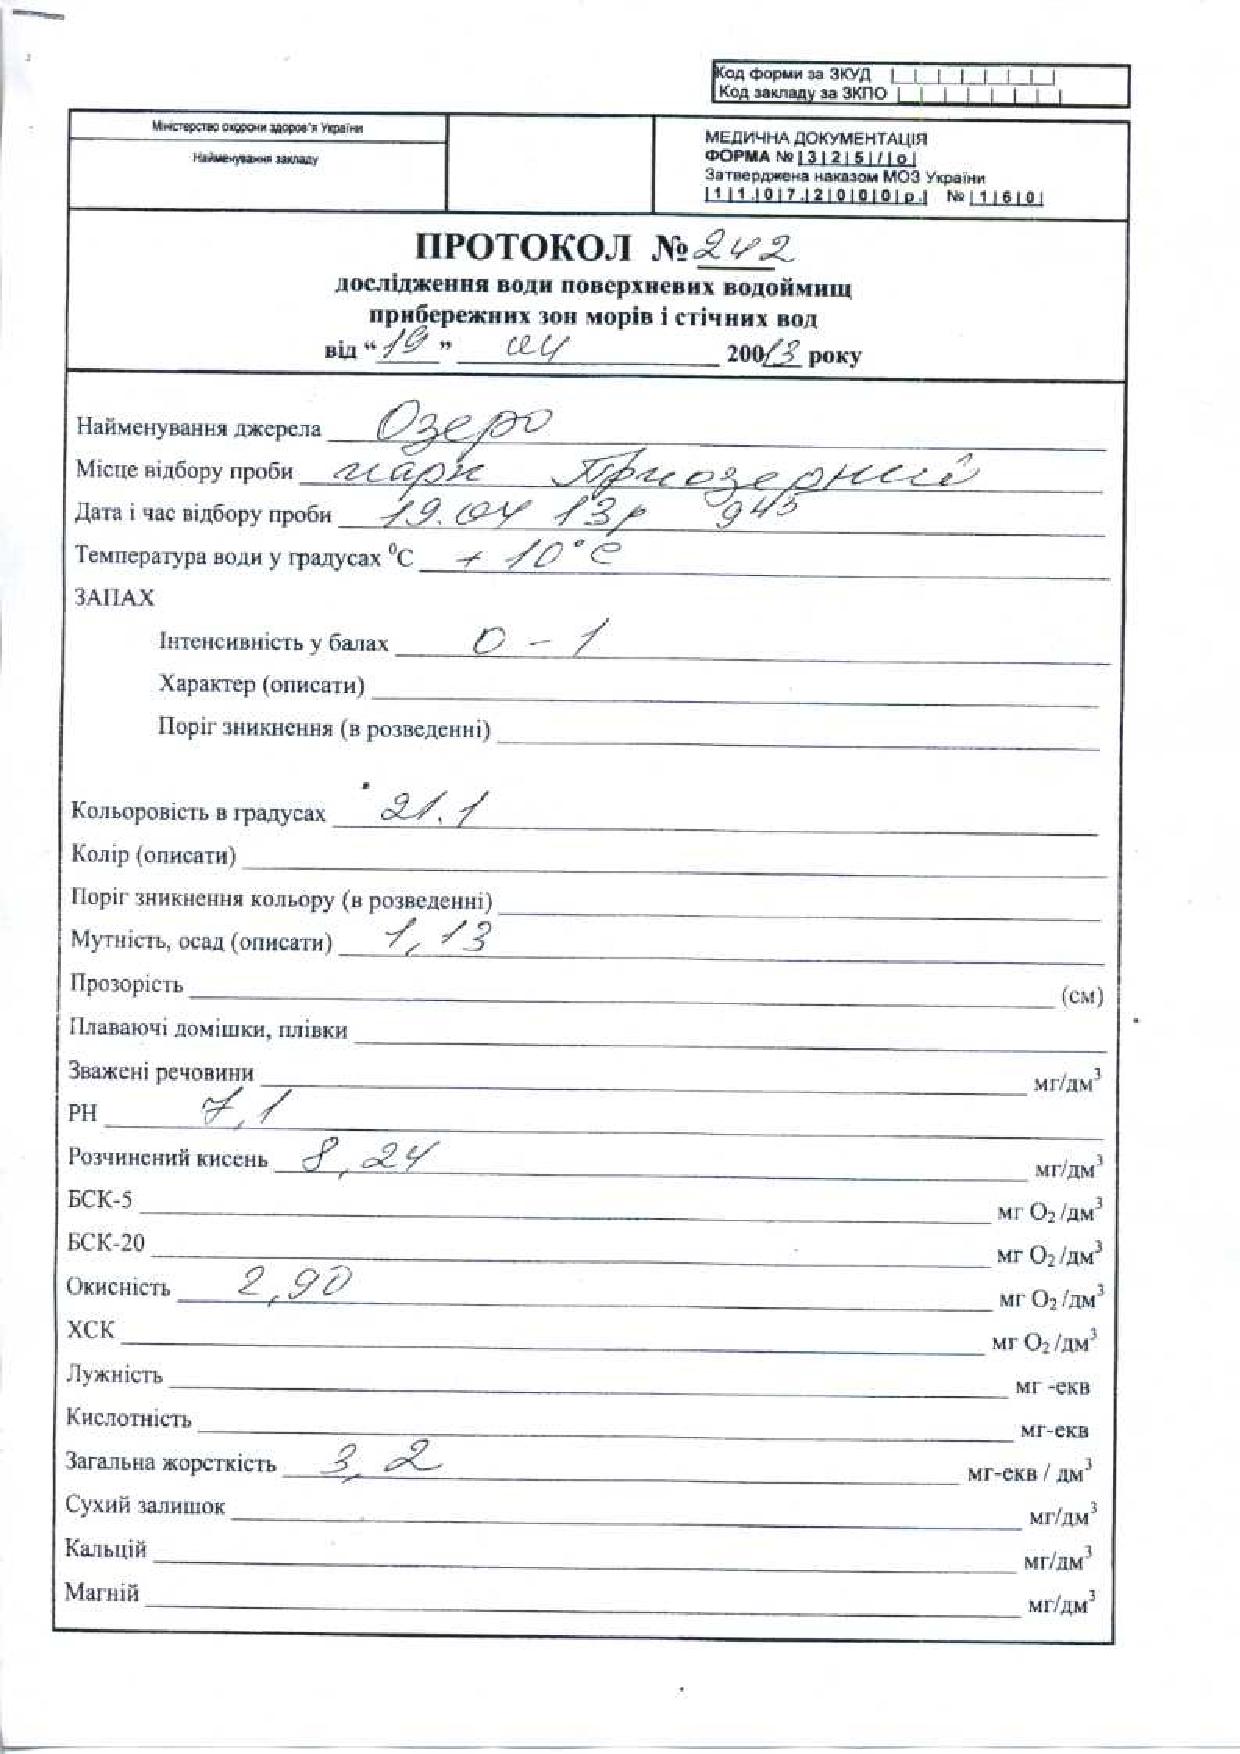 Код форми за ЗКУД
Код закладу за ЗКПО
Міністерство охорони здоров'я України
Найменування закладу
МЕДИЧНА ДОКУМЕНТАЦІЯ
ФОРМА № |3|2|5|/|о|
Затверджена наказом МОЗ України
|1|1.|0|7.|2|0|0|0|р.| № |1|6|0|
ПРОТОКОЛ № 242
дослідження води поверхневих водоймищ
прибережних зон морів і стічних вод
від “19” 04 20013 року
Найменування джерела Озеро
Місце відбору проби парк Приозерний
Дата і час відбору проби 19.04 13р 9 45
Температура води у градусах ⁰С + 10°С
ЗАПАХ
Інтенсивність у балах 0 - 1
Характер (описати)
Поріг зникнення (в розведенні)
Кольоровість в градусах 21.1
Колір (описати)
Поріг зникнення кольору (в розведенні)
Мутність, осад (описати) 1,13
Прозорість (см)
Плаваючі домішки, плівки
Зважені речовини мг/дм³
РН 7,1
Розчинений кисень 8,24 мг/дм³
БСК-5 мг О₂ /дм³
БСК-20 мг О₂ /дм³
Окисність 2,90 мг О₂ /дм³
ХСК мг О₂ /дм³
Лужність мг -екв
Кислотність мг-екв
Загальна жорсткість 3,2 мг-екв / дм³
Сухий залишок мг/дм³
Кальцій мг/дм³
Магній мг/дм³